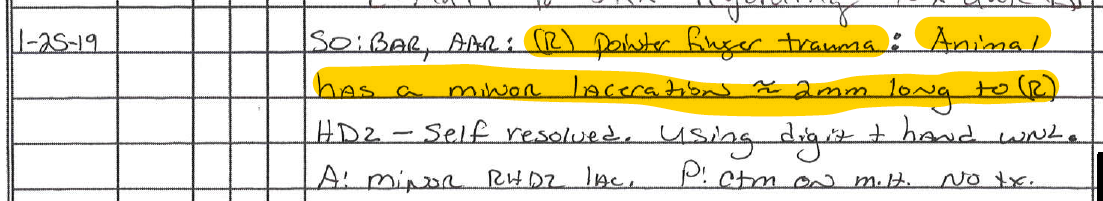 regarding
1-25-19 SO: BAR, AAR: (R) pointer finger trauma: Animal
has a minor laceration ≈ 2mm long to (R)
HD2 - Self resolved. Using digit + hand WNL.
A: minor RHD2 lac. P: Ctm on m.H. No tx.